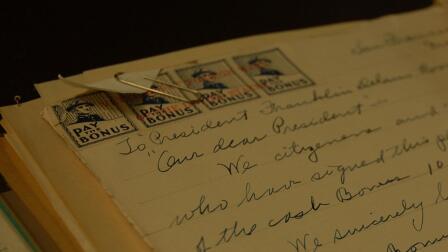 San Francisco
PAY the BONUS
PAY BONUS
PAY the BONUS
PAY the BONUS
To President Franklin Delano
"Our dear President"
We citizens and
who have signed this
of the cash Bonus 10
We sincerely
Bonus